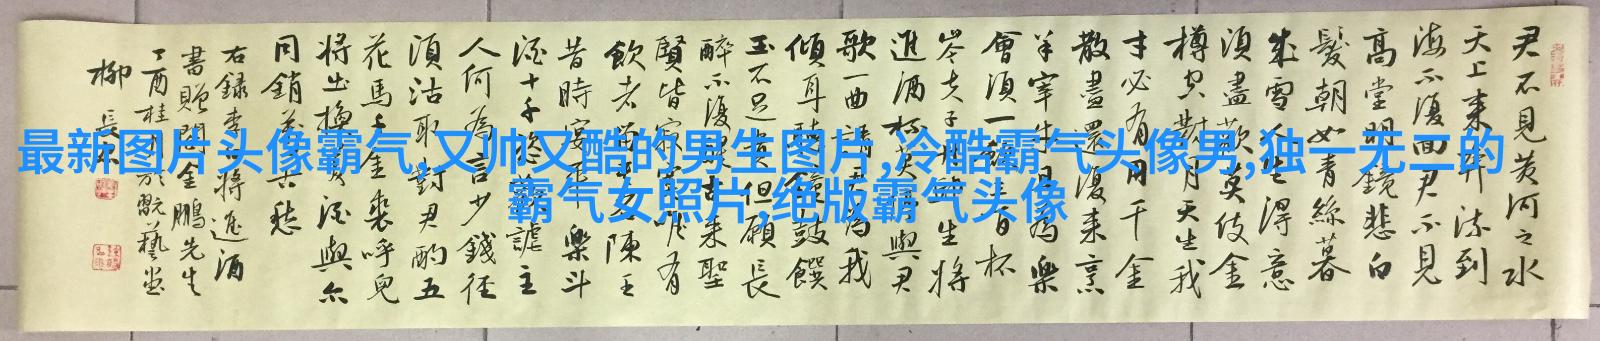 最新图片头像霸气,又帅又酷的男生图片,冷酷霸气头像男,独一无二的
霸气女照片,绝版霸气头像
君不見黃河之水
天上来奔流到
海不復回君不見
高堂明鏡悲白
髮朝如青絲暮
成雪人生得意
須盡歡莫使金
樽空對月天生我
才必有用千金
散盡還復来烹
羊宰牛且為樂
會須一飲三百杯
岑夫子丹丘生將
進酒杯莫停與君
歌一曲請君為我
傾耳聽鐘鼓饌
玉不足貴但願長
醉不復醒古来聖
賢皆寂寞唯有
飲者留其名陳王
昔時宴平樂斗
酒十千恣讙謔主
人何為言少錢徑
須沽取對君酌五
花馬千金裘呼兒
將出換美酒與尔
同銷萬古愁
右録李白將進酒
書贈金鵬先生
丁酉桂月於翫藝堂
柳長